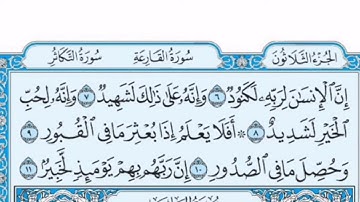 الجُزْءُ الثَّلَاثُونَ سُورَةُ القَارِعَةِ سُورَةُ التَّكَاثُرِ
إِنَّ ٱلْإِنسَٰنَ لِرَبِّهِۦ لَكَنُودٌ ٦ وَإِنَّهُۥ عَلَىٰ ذَٰلِكَ لَشَهِيدٌ ٧ وَإِنَّهُۥ لِحُبِّ
ٱلْخَيْرِ لَشَدِيدٌ ٨ ۞ أَفَلَا يَعْلَمُ إِذَا بُعْثِرَ مَا فِى ٱلْقُبُورِ ٩
وَحُصِّلَ مَا فِى ٱلصُّدُورِ ١٠ إِنَّ رَبَّهُم بِهِمْ يَوْمَئِذٍ لَّخَبِيرٌۢ ١١